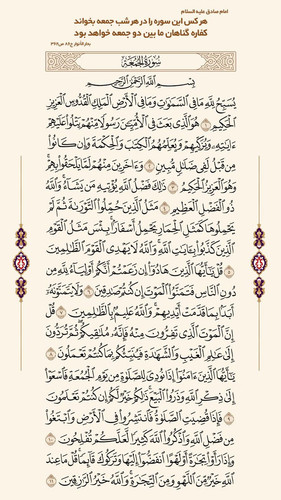 امام صادق علیه السلام
هر کس این سوره را در هر شب جمعه بخواند
کفاره گناهان ما بین دو جمعه خواهد بود
سُورَةُ الجُمُعَةِ
بِسْمِ اللَّهِ الرَّحْمَٰنِ الرَّحِيمِ
يُسَبِّحُ لِلَّهِ مَا فِي السَّمَاوَاتِ وَمَا فِي الْأَرْضِ الْمَلِكِ الْقُدُّوسِ الْعَزِيزِ
الْحَكِيمِ ١ هُوَ الَّذِي بَعَثَ فِي الْأُمِّيِّينَ رَسُولًا مِنْهُمْ يَتْلُو عَلَيْهِمْ
آيَاتِهِ وَيُزَكِّيهِمْ وَيُعَلِّمُهُمُ الْكِتَابَ وَالْحِكْمَةَ وَإِنْ كَانُوا
مِنْ قَبْلُ لَفِي ضَلَالٍ مُبِينٍ ٢ وَآخَرِينَ مِنْهُمْ لَمَّا يَلْحَقُوا بِهِمْ
وَهُوَ الْعَزِيزُ الْحَكِيمُ ٣ ذَٰلِكَ فَضْلُ اللَّهِ يُؤْتِيهِ مَنْ يَشَاءُ وَاللَّهُ
ذُو الْفَضْلِ الْعَظِيمِ ٤ مَثَلُ الَّذِينَ حُمِّلُوا التَّوْرَاةَ ثُمَّ لَمْ
يَحْمِلُوهَا كَمَثَلِ الْحِمَارِ يَحْمِلُ أَسْفَارًا بِئْسَ مَثَلُ الْقَوْمِ
الَّذِينَ كَذَّبُوا بِآيَاتِ اللَّهِ وَاللَّهُ لَا يَهْدِي الْقَوْمَ الظَّالِمِينَ
٥ قُلْ يَا أَيُّهَا الَّذِينَ هَادُوا إِنْ زَعَمْتُمْ أَنَّكُمْ أَوْلِيَاءُ لِلَّهِ مِنْ
دُونِ النَّاسِ فَتَمَنَّوُا الْمَوْتَ إِنْ كُنْتُمْ صَادِقِينَ ٦ وَلَا يَتَمَنَّوْنَهُ
أَبَدًا بِمَا قَدَّمَتْ أَيْدِيهِمْ وَاللَّهُ عَلِيمٌ بِالظَّالِمِينَ ٧ قُلْ
إِنَّ الْمَوْتَ الَّذِي تَفِرُّونَ مِنْهُ فَإِنَّهُ مُلَاقِيكُمْ ثُمَّ تُرَدُّونَ
إِلَىٰ عَالِمِ الْغَيْبِ وَالشَّهَادَةِ فَيُنَبِّئُكُمْ بِمَا كُنْتُمْ تَعْمَلُونَ ٨
يَا أَيُّهَا الَّذِينَ آمَنُوا إِذَا نُودِيَ لِلصَّلَاةِ مِنْ يَوْمِ الْجُمُعَةِ فَاسْعَوْا
إِلَىٰ ذِكْرِ اللَّهِ وَذَرُوا الْبَيْعَ ذَٰلِكُمْ خَيْرٌ لَكُمْ إِنْ كُنْتُمْ تَعْلَمُونَ
٩ فَإِذَا قُضِيَتِ الصَّلَاةُ فَانْتَشِرُوا فِي الْأَرْضِ وَابْتَغُوا
مِنْ فَضْلِ اللَّهِ وَاذْكُرُوا اللَّهَ كَثِيرًا لَعَلَّكُمْ تُفْلِحُونَ ١٠
وَإِذَا رَأَوْا تِجَارَةً أَوْ لَهْوًا انْفَضُّوا إِلَيْهَا وَتَرَكُوكَ قَائِمًا قُلْ مَا عِنْدَ
اللَّهِ خَيْرٌ مِنَ اللَّهْوِ وَمِنَ التِّجَارَةِ وَاللَّهُ خَيْرُ الرَّازِقِينَ ١١